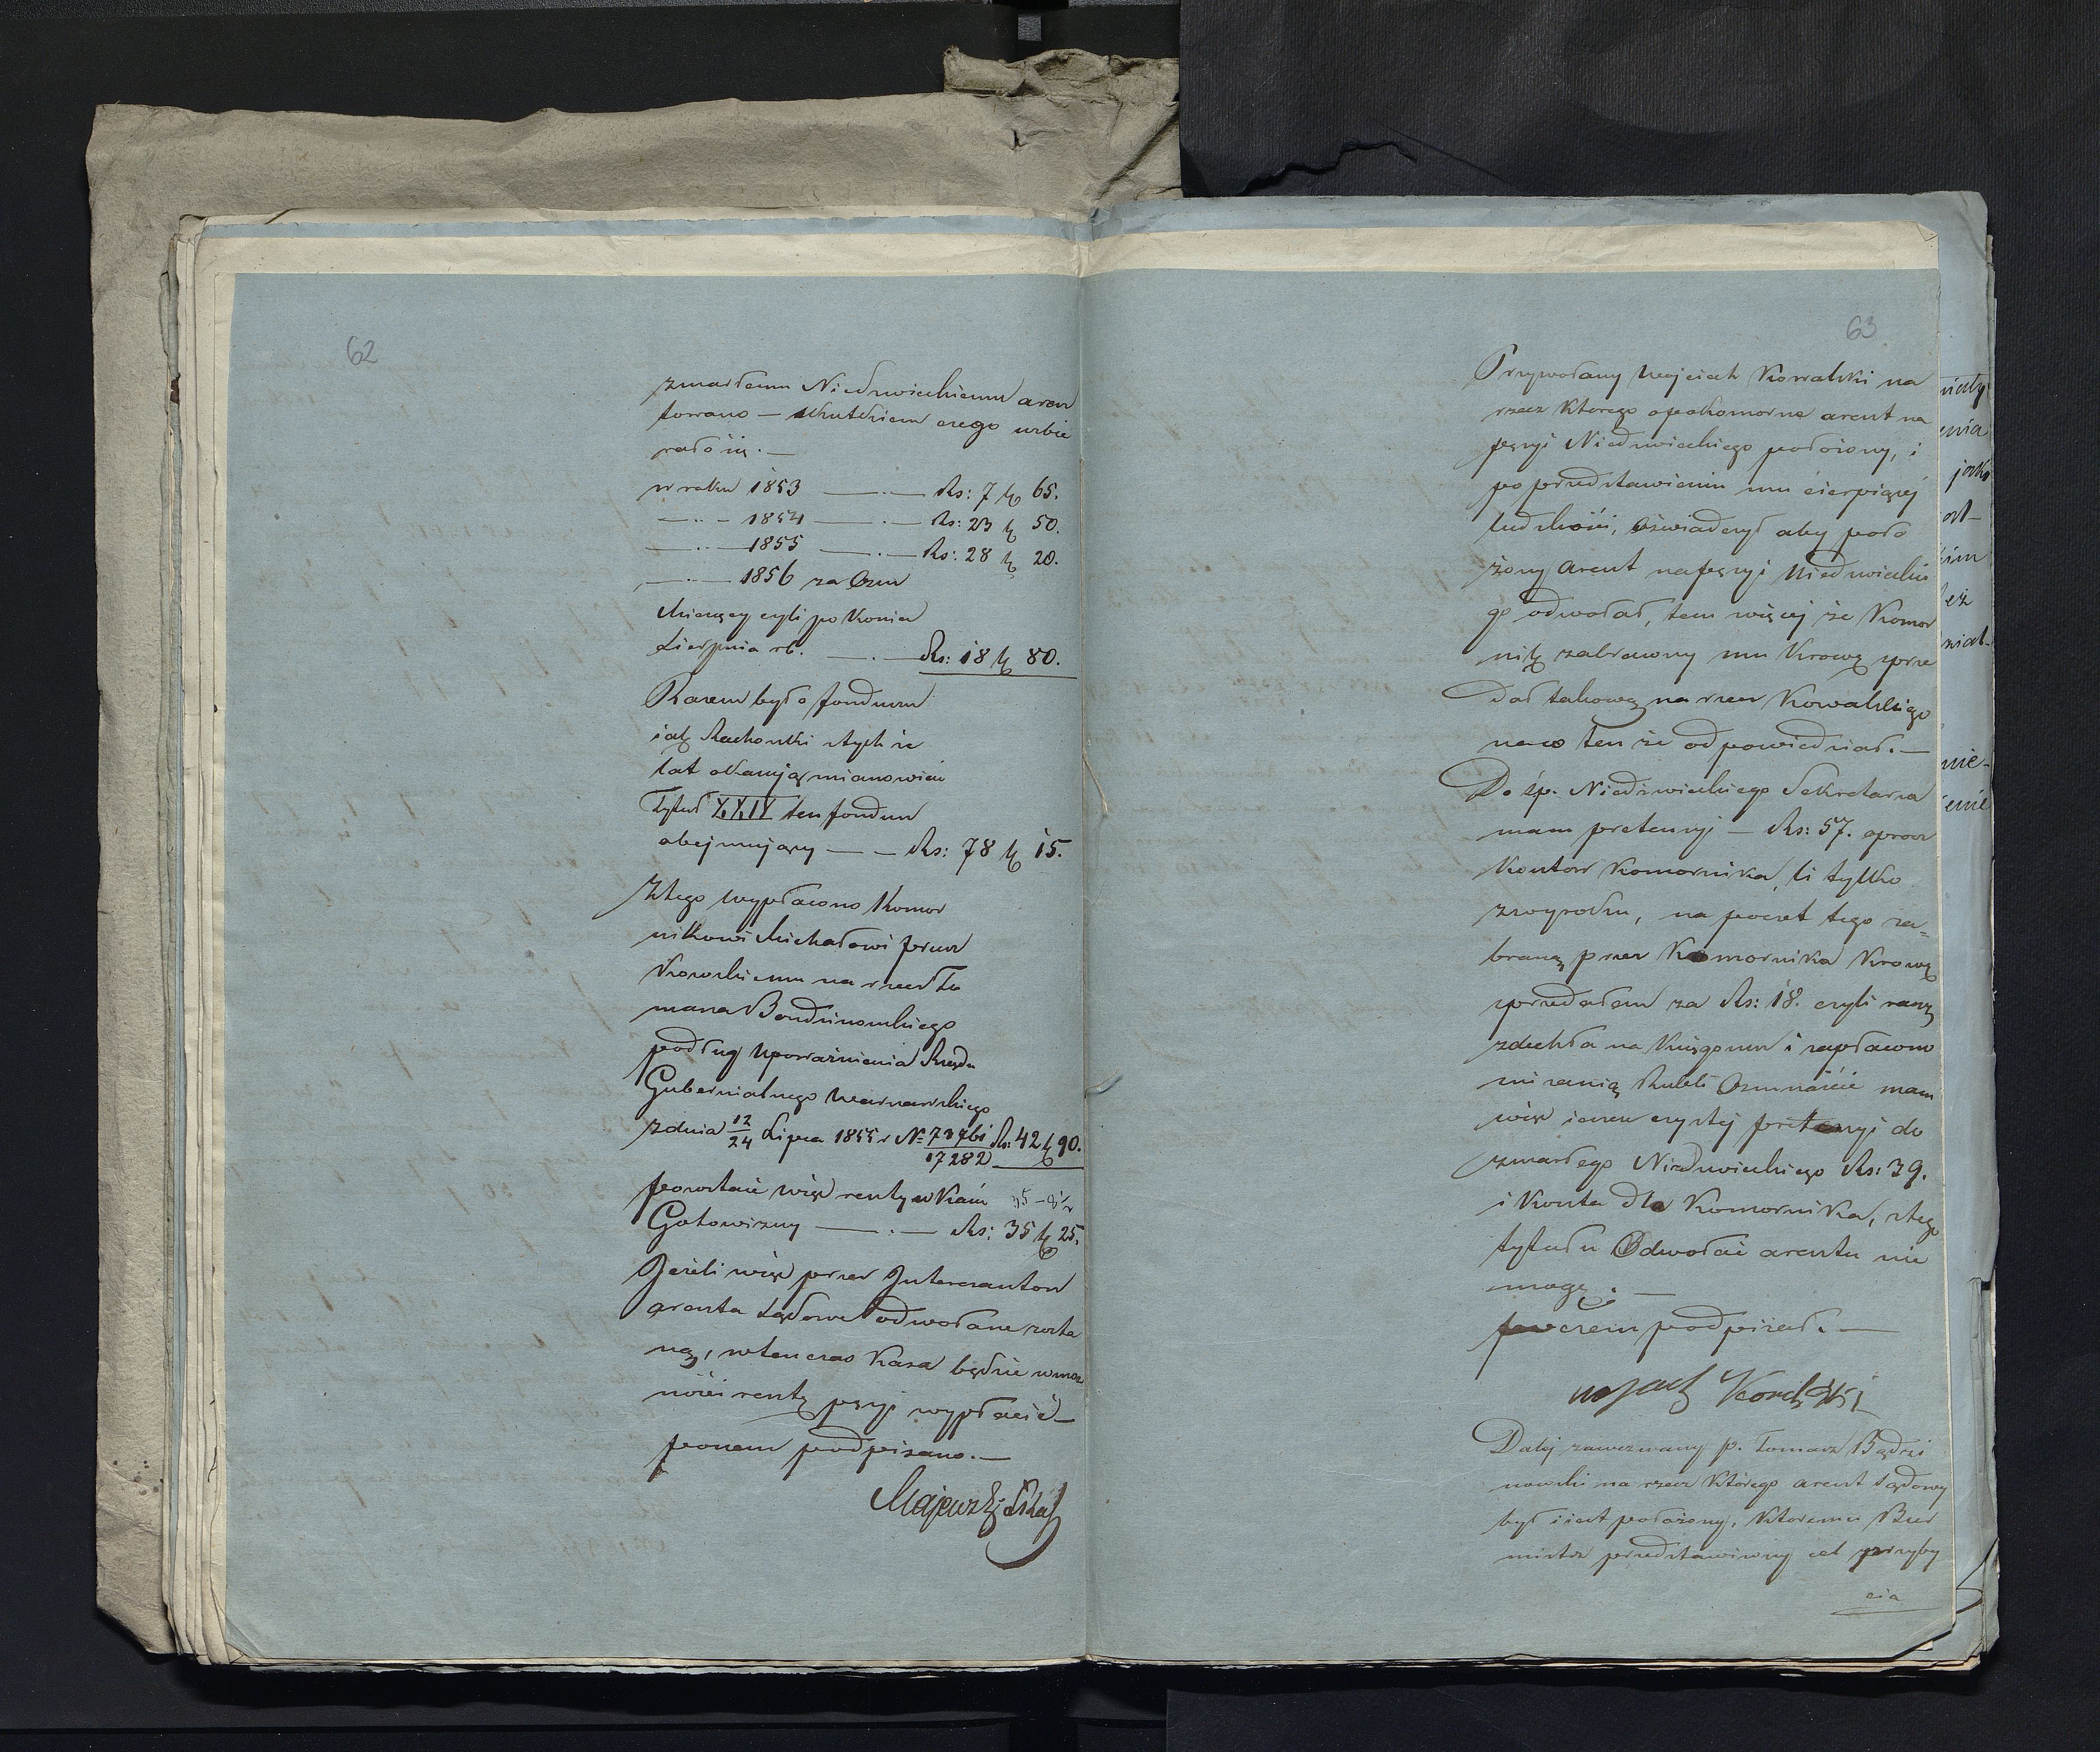 62
zmarłemu Niedzwieckiemu aresz
towano — skutkiem czego uzbie
rało się. —
w roku 1853 —··— Rs: 7 k 65.
—··— 1854 —·— Rs: 23 k 50.
—··— 1855 —·— Rs: 28 k 20.
—··— 1856 za Ośm
Miesięcy czyli po koniec
Sierpnia rb. —·— Rs: 18 k 80.
Razem było funduszu
jak Rachunki z tych że
lat okazują mianowicie
Tytuł XXIV ten fundusz
obejmujący — — Rs: 78 k 15.
Z tego wypłacono Komor
nikowi Michałowi
na rzecz To
masza Bendzinowskiego
podług Upoważnienia Rządu
Gubernialnego Warszawskiego
z dnia 12/24 Lipca 1855 r N: 73761/17282 Rs: 42 k 90.
pozostaie więc reszty w Kassie
Gotowizny —·— Rs: 35 k 25.
Jeżeli więc przez Interesantow
areszta Sądowe odwołane zosta
ną, wtenczas Kasa będzie w moż
ności resztę pęsyi wypłacić —
poczem podpisano. —
Majewski
63
Przywołany Wojciech Kowalski na
rzecz ktorego opokomorne areszt na
pęsyi Niedzwieckiego położony, i
po przedstawieniu mu cierpiącej
ludzkości, oświadczył aby poło
żony areszt na pęsyi Niedzwieckie
go odwołał, tem więcej że Komor
nik zabrawszy mu Krowę sprze
dał takową na rzecz Kowalskiego
na co ten że odpowiedział. —
Do śp. Niedzwieckiego Sekretarza
mam pretensyi — Rs: 57. oprocz
Kosztow Komornika, li tylko
z wyroku, na poczet tego za=
braną przez Komornika Krowę
sprzedałem za Rs: 18. czyli raczej
zdechła na Księgosusz i zapłacono
mi za nią Rubli Ośmnaście mam
więc jeszcze czystej pretensyi do
zmarłego Niedzwieckiego Rs: 39.
i koszta dla Komornika, z tego
tytułu Odwołać aresztu nie
mogę. —
poczem podpisał. —
Wojciech Kowalski
Dalej zawezwany p. Tomasz Będzi
nowski na rzecz którego areszt Sądowy
był i jest położony, ktoremu Bur
mistrz przedstawiwszy cel przyby
cia